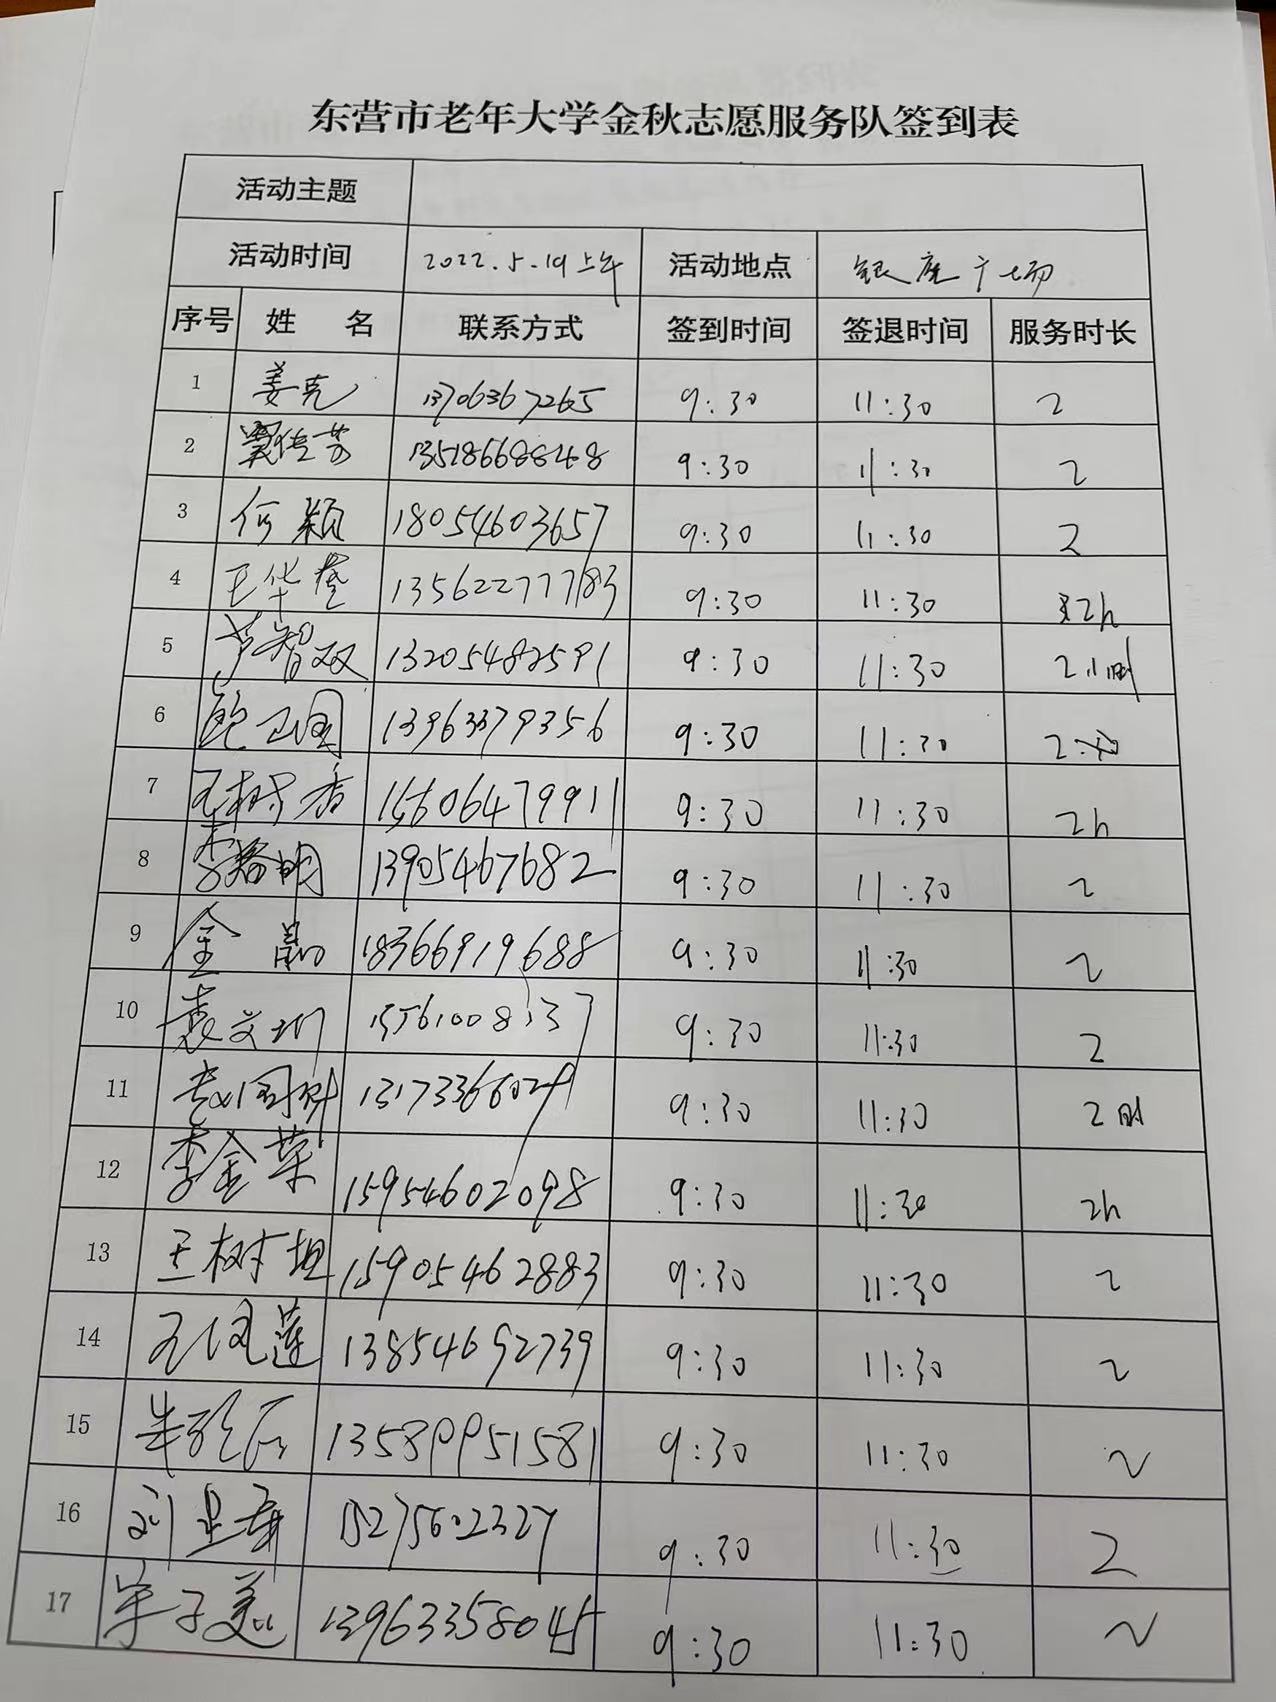 东营市老年大学金秋志愿服务队签到表
活动主题
活动时间 2022.5.19上午 活动地点 银座广场
序号 姓 名 联系方式 签到时间 签退时间 服务时长
1 姜克 13706367265 9:30 11:30 2
2 窦传芳 13518668848 9:30 11:30 2
3 何颖 18054603657 9:30 11:30 2
4 王华 13562277783 9:30 11:30 2h
5 芦智双 13205482591 9:30 11:30 2小时
6 鲍卫国 13963379356 9:30 11:30 2
7 王树香 15606479911 9:30 11:30 2h
8 李春明 13905467682 9:30 11:30 2
9 金晶 18366919688 9:30 11:30 2
10 袁文 15561008137 9:30 11:30 2
11 13173366029 9:30 11:30 2时
12 李金荣 15954602098 9:30 11:30 2h
13 王树坦 15905462883 9:30 11:30 2
14 王凤莲 13854692739 9:30 11:30 2
15 13589951581 9:30 11:30 2
16 刘 15275602327 9:30 11:30 2
17 子美 13963358045 9:30 11:30 2